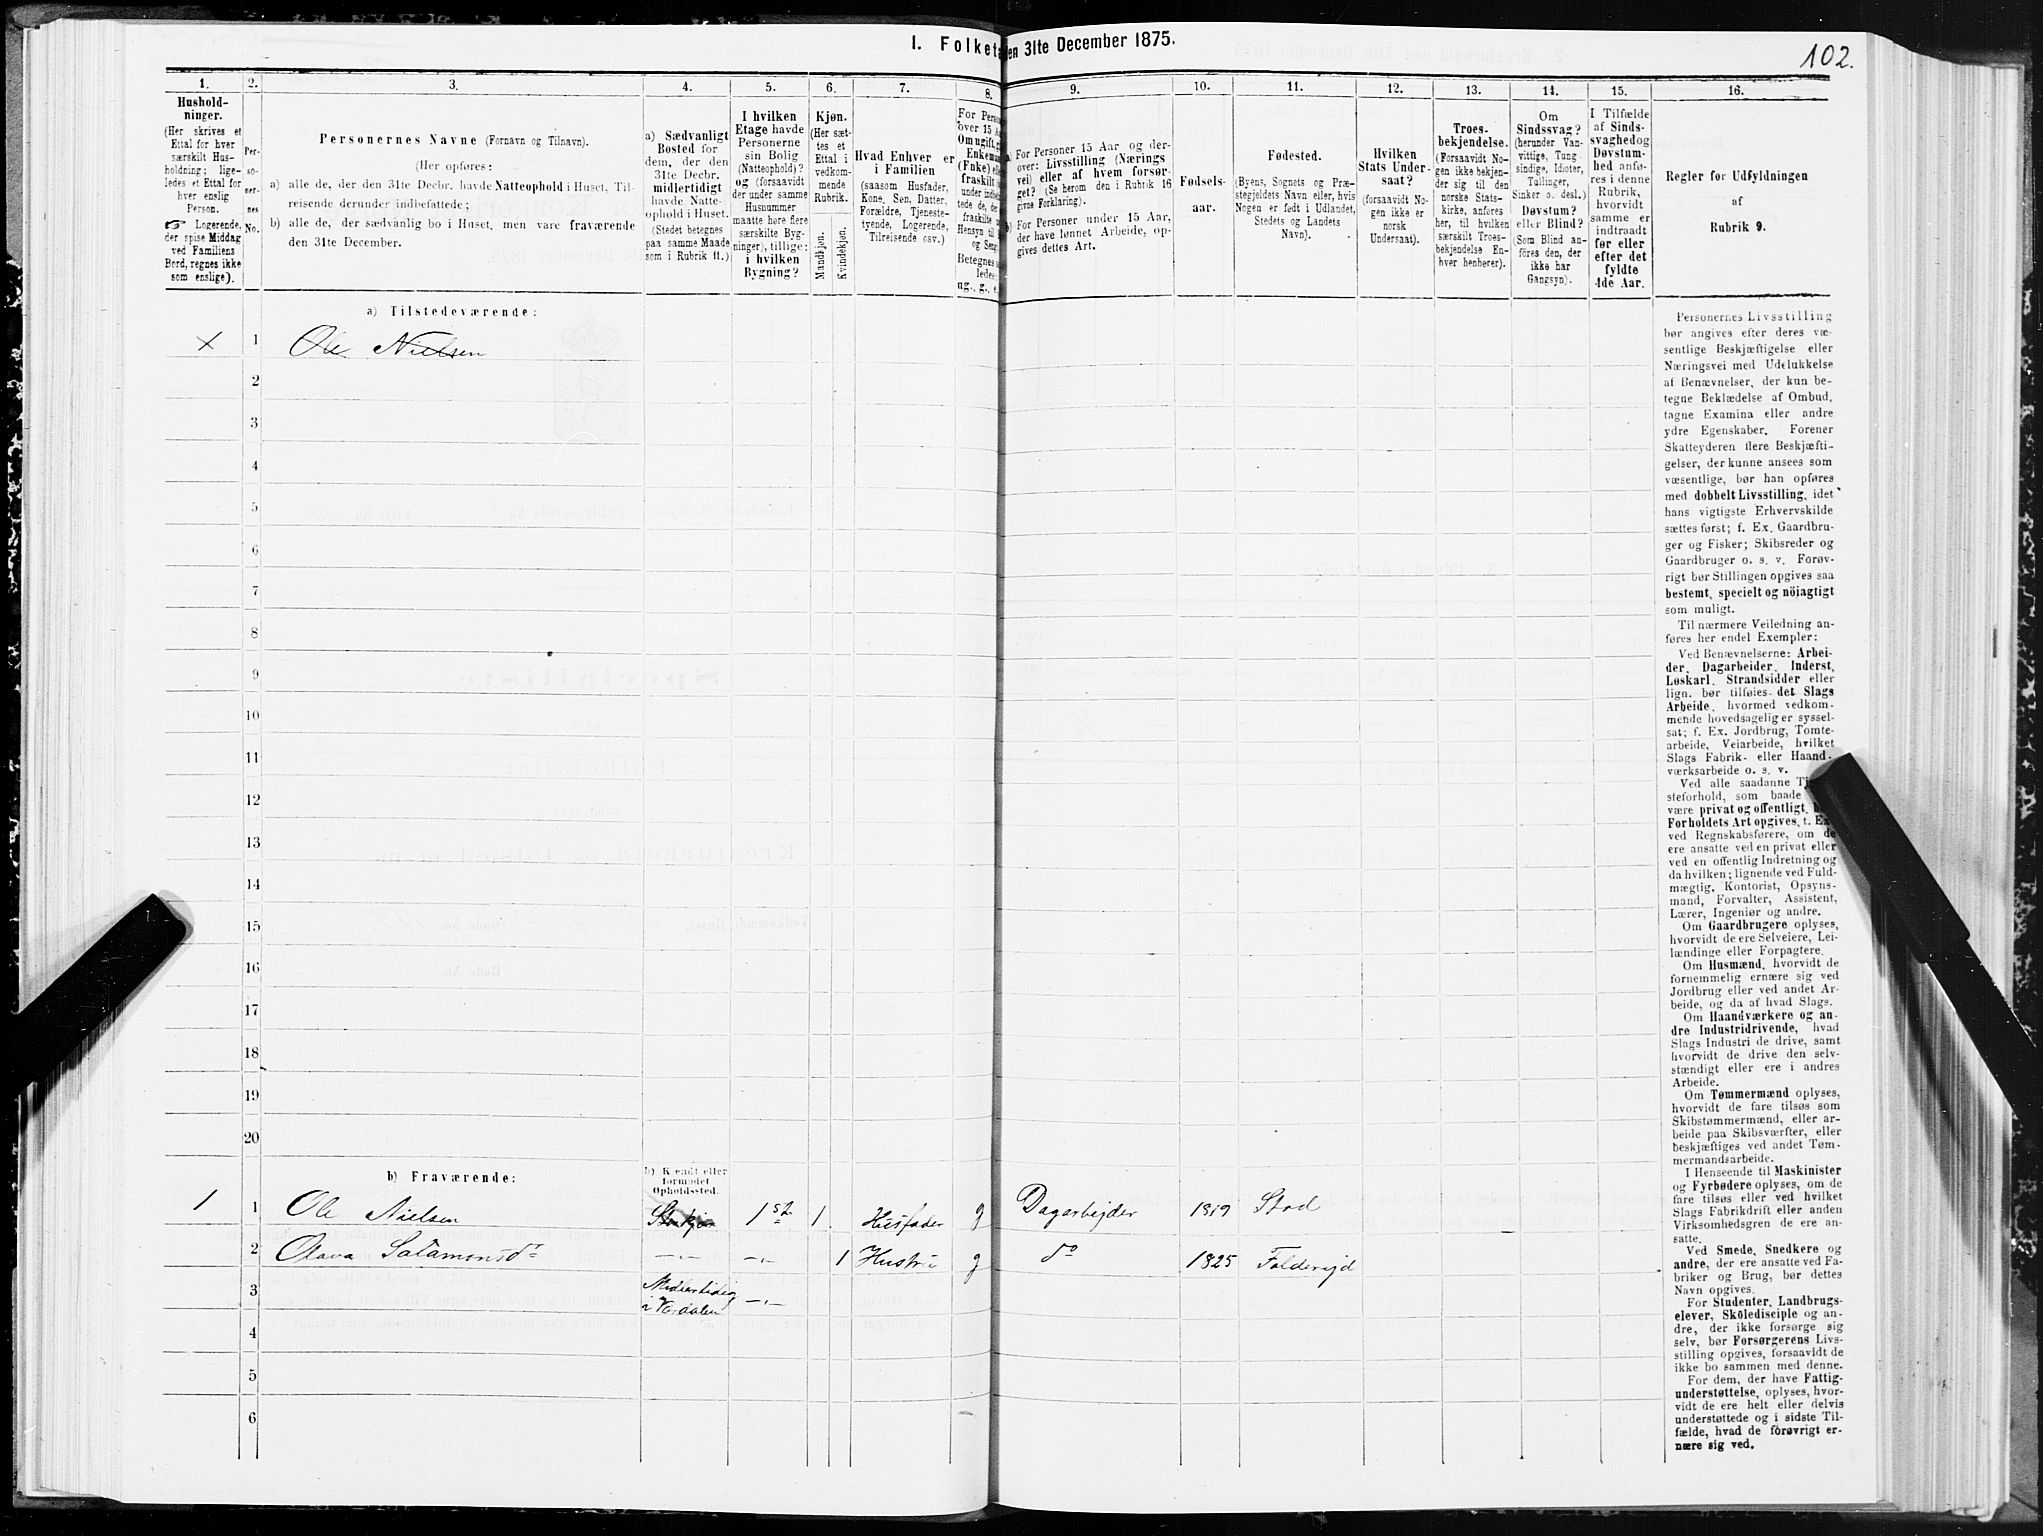 I. Folketæ
en 31te December 1875.
102.
1.
2.
3.
4.
5.
6.
7.
8.
9.
10.
11.
12.
13.
14.
15.
16.
Hushold-
ninger.
(Her skrives et
Ettal for hver
særskilt Hus-
holdning; lige-
ledes et Ettal for
hver enslig
Person.
☞ Logerende,
der spise Middag
ved Familiens
Bord, regnes ikke
som enslige).
Per-
so-
ner-
nes
No.
Personernes Navne (Fornavn og Tilnavn).
(Her opføres:
a) alle de, der den 31te Decbr. havde Natteophold i Huset, Til-
reisende derunder indbefattede;
b) alle de, der sædvanlig bo i Huset, men vare fraværende
den 31te December.
a) Sædvanligt
Bosted for
dem, der den
31te Decbr.
midlertidigt
havde Natte-
ophold i Huset.
(Stedet betegnes
paa samme Maade
som i Rubrik 11.)
I hvilken
Etage havde
Personerne
sin Bolig
(Natteophold)?
og (forsaavidt
der under samme
Husnummer
maatte høre flere
særskilte Byg-
ninger), tillige:
i hvilken
Bygning?
Kjøn.
(Her sæt-
tes et
Ettal i
vedkom-
mende
Rubrik.
Mandkjøn.
Kvindekjøn.
Hvad Enhver er
i Familien
(saasom Husfader,
Kone, Søn, Datter,
Forældre, Tjeneste-
tyende, Logerende,
Tilreisende osv.)
For Perso
over 15 A
Om ugift, g
Enkema
(Enke) ell
fraskilt
Hensyn til
og Seng
Betegnes s
ledes
ug., g., e
a) For Personer 15 Aar og der-
over: Livsstilling (Nærings
vei) eller af hvem forsør-
get? (Se herom den i Rubrik 16
givne Forklaring).
b) For Personer under 15 Aar,
der have lønnet Arbeide, op-
gives dettes Art.
Fødsels-
aar.
Fødested.
(Byens, Sognets og Præ-
stegjeldets Navn eller, hvis
Nogen er født i Udlandet,
Stedets og Landets
Navn).
Hvilken
Stats Under-
saat?
(forsaavidt No-
gen ikke er
norsk
Undersaat).
Troes-
bekjendelse.
(Forsaavidt No-
gen ikke bekjen-
der sig til den
norske Stats-
kirke, anføres
her, til hvilken
særskilt Troes-
bekjendelse En-
hver henhører).
Om
Sindssvag?
(herunder Van-
vittige, Tung-
sindige, Idioter,
Tullinger,
Sinker o. desl.)
Døvstum?
eller Blind?
(Som Blind an-
føres den, der
ikke har
Gangsyn).
I Tilfælde
af Sinds-
svaghed og
Døvstum-
hed anfø-
res i denne
Rubrik,
hvorvidt
samme er
indtraadt
før eller
efter det
fyldte
4de Aar.
Regler for Udfyldningen
af
Rubrik 9.
a) Tilstedeværende:
x 1 Ole Nielsen
2
3
4
5
6
7
8
9
10
11
12
13
14
15
16
17
18
19
20
b) Fraværende:
b) Kjendt eller
formodet
Opholdssted.
1 1 Ole Nielsen Stenkjær 1 st. 1 Husfader g Dagarbejder 1819 Stod
2 Olava Salamonsdr — „ — — „ — 1 Hustru g do 1825 Folderejd
3 Midlertidig — „ —
i Værdalen
4
5
6
Personernes Livsstilling
bør angives efter deres væ-
sentlige Beskjæftigelse eller
Næringsvei med Udelukkelse
af Benævnelser, der kun be-
tegne Beklædelse af Ombud,
tagne Examina eller andre
ydre Egenskaber. Forener
Skatteyderen flere Beskjæfti-
gelser, der kunne ansees som
væsentlige, bør han opføres
med dobbelt Livsstilling, idet
hans vigtigste Erhvervskilde
sættes først; f. Ex. Gaardbru-
ger og Fisker; Skibsreder og
Gaardbruger o. s. v. Forøv-
rigt bør Stillingen opgives saa
bestemt, specielt og nöiagtigt
som muligt.
Til nærmere Veiledning an-
føres her endel Exempler:
Ved Benævnelserne: Arbei-
der, Dagarbeider, Inderst,
Løskarl, Strandsidder eller
lign. bør tilføies det Slags
Arbeide, hvormed vedkom-
mende hovedsagelig er syssel-
sat; f. Ex. Jordbrug, Tomte-
arbeide, Veiarbeide, hvilket
Slags Fabrik- eller Haand-
værksarbeide o. s. v.
Ved alle saadanne Tj
steforhold, som baade
være privat og offentligt,
Forholdets Art opgives, f. Ex
ved Regnskabsførere, om de
ere ansatte ved en privat eller
ved en offentlig Indretning og
da hvilken; lignende ved Fuld-
mægtig, Kontorist, Opsyns-
mand, Forvalter, Assistent,
Lærer, Ingeniør og andre.
Om Gaardbrugere oplyses,
hvorvidt de ere Selveiere, Lei-
lændinge eller Forpagtere.
Om Husmænd, hvorvidt de
fornemmelig ernære sig ved
Jordbrug eller ved andet Ar-
beide, og da af hvad Slags.
Om Haandværkere og an-
dre Industridrivende, hvad
Slags Industri de drive, samt
hvorvidt de drive den selv-
stændigt eller ere i andres
Arbeide.
Om Tømmermænd oplyses,
hvorvidt de fare tilsøs som
Skibstømmermænd, eller ar-
beide paa Skibsværfter, eller
beskjæftiges ved andet Tøm-
mermandsarbeide.
I Henseende til Maskinister
og Fyrbødere oplyses, om de
fare tilsøs eller ved hvilket
Slags Fabrikdrift eller anden
Virksomhedsgren de ere an-
satte.
Ved Smede, Snedkere og
andre, der ere ansatte ved Fa-
briker og Brug, bør dettes
Navn opgives.
For Studenter, Landbrugs-
elever, Skôledisciple og an-
dre, der ikke forsørge sig
selv, bør Forsørgerens Livs-
stilling opgives, forsaavidt de
ikke bo sammen med denne.
For dem, der have Fattig-
understøttelse, oplyses, hvor-
vidt de ere helt eller delvis
understøttede og i sidste Til-
fælde, hvad de forøvrigt er-
nære sig ved.